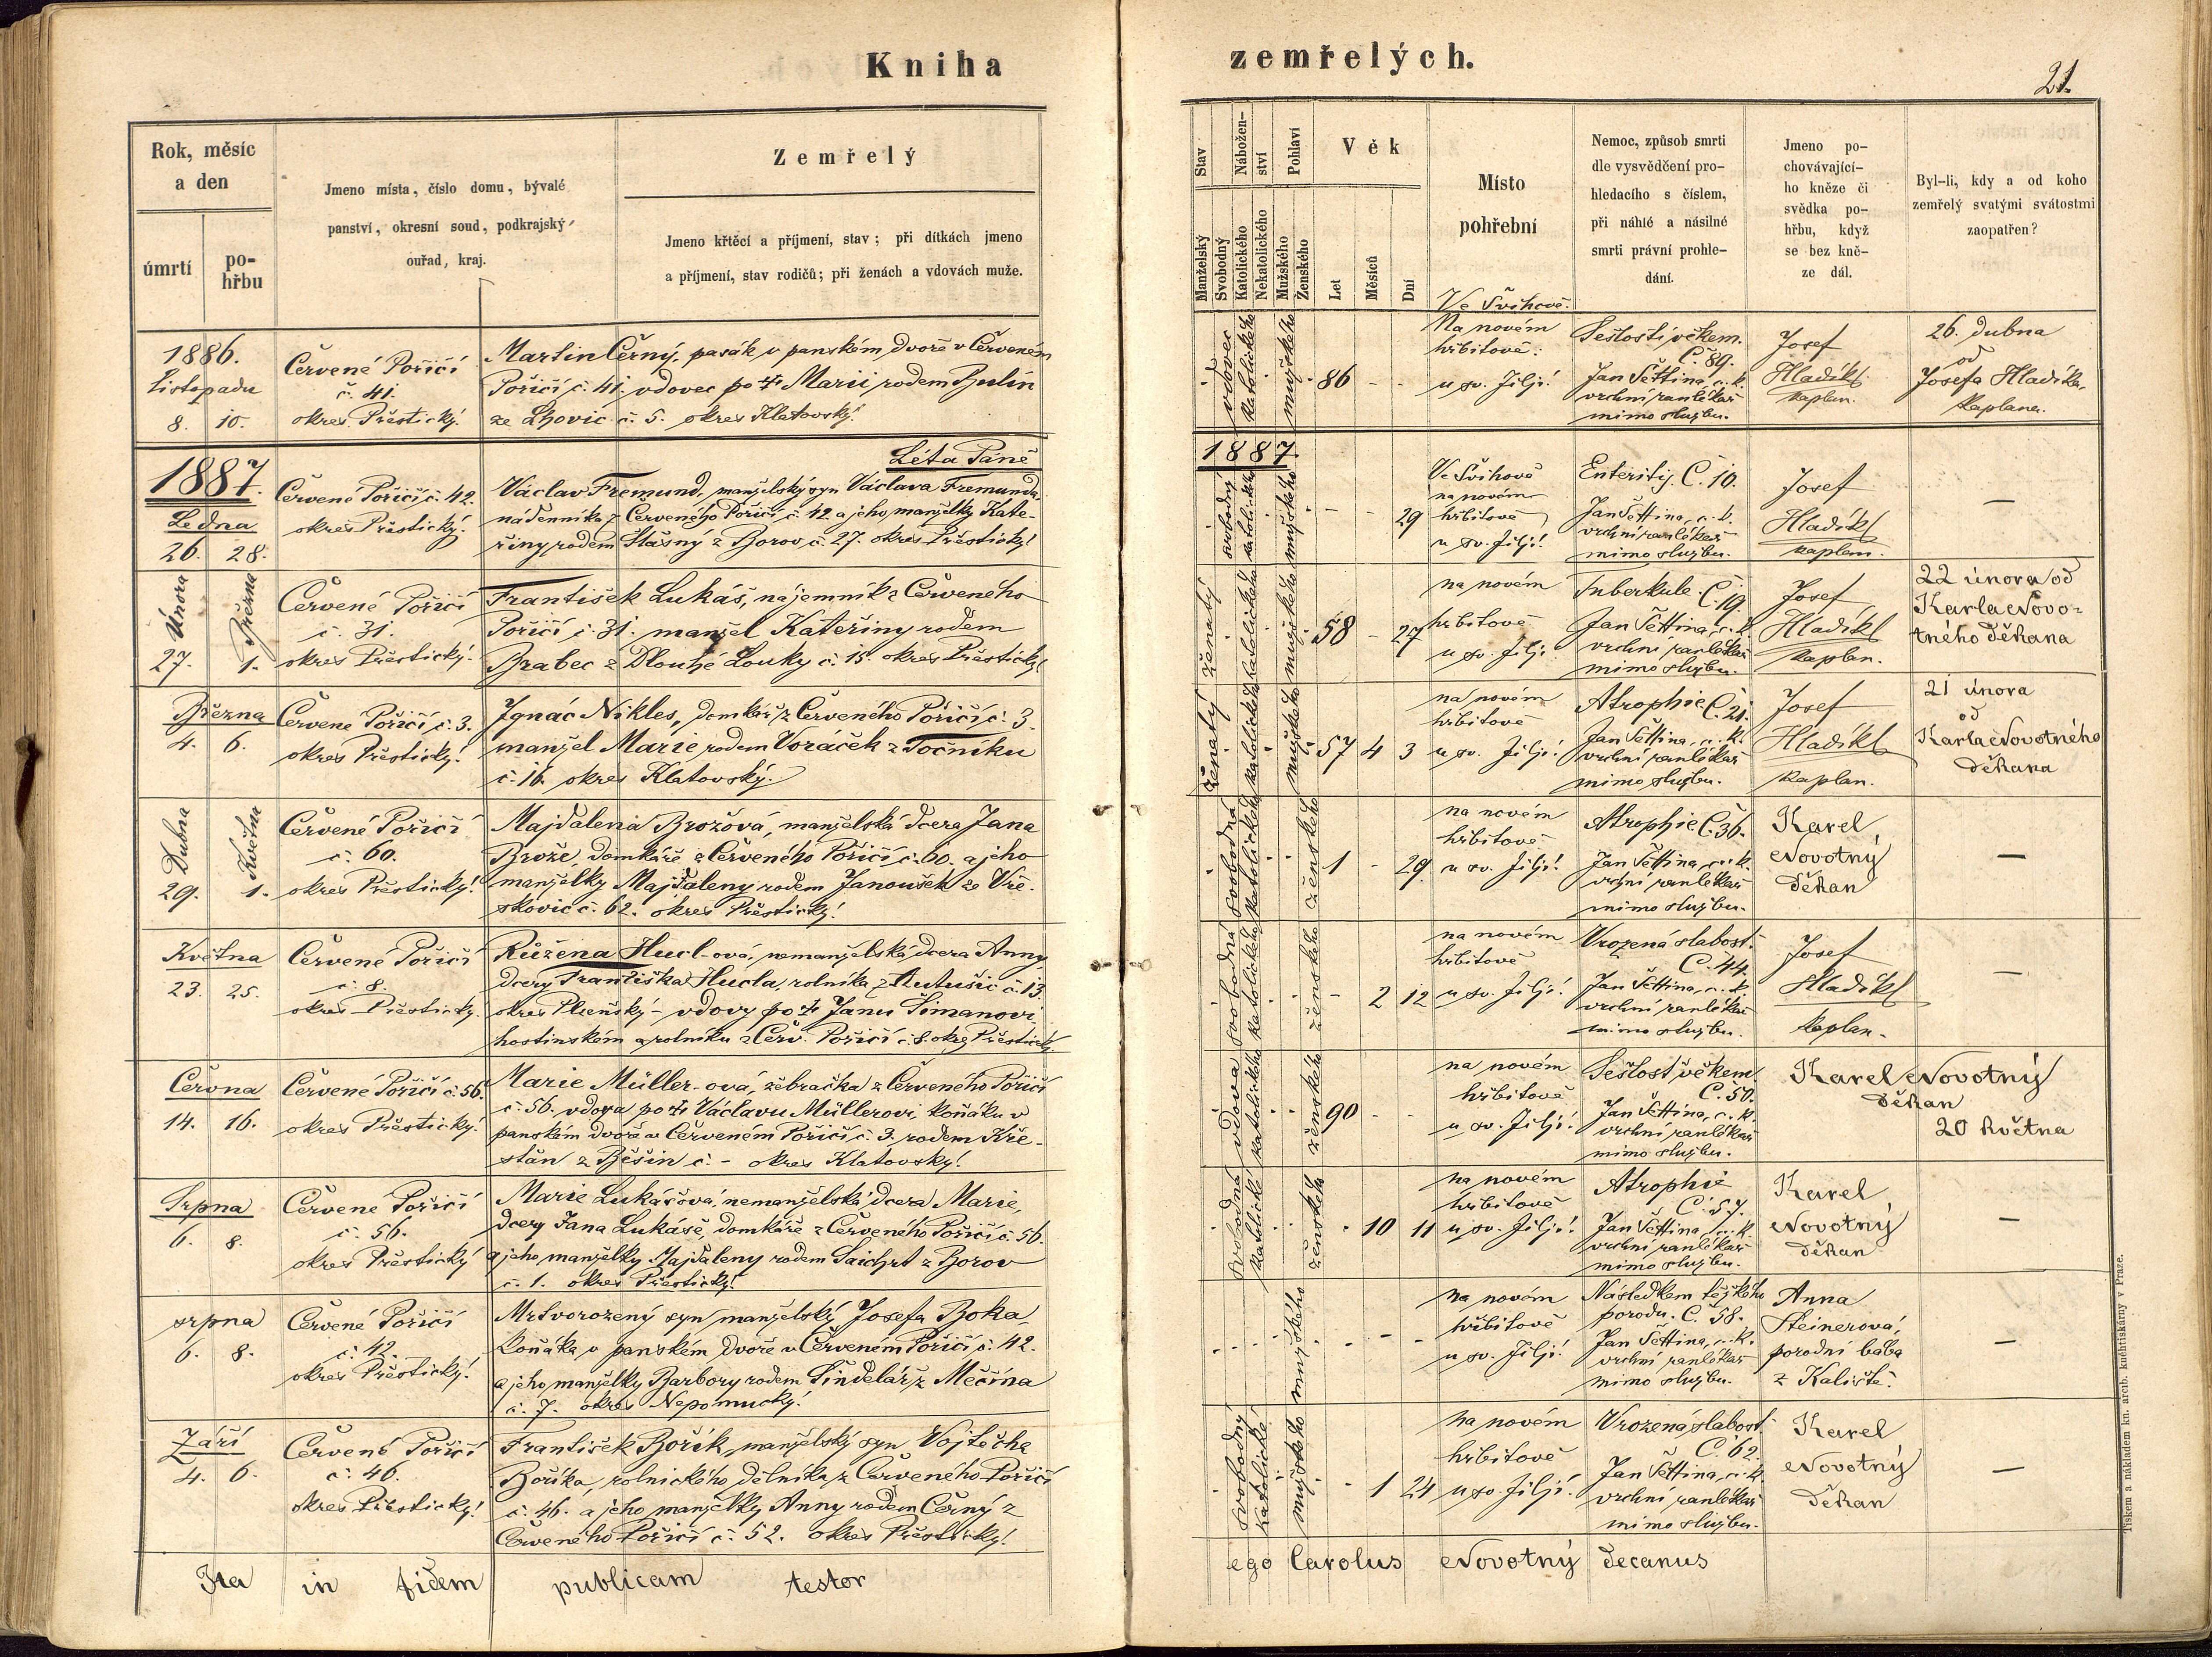 Kniha
zemřelých.
21.
Rok, měsíc
a den
úmrtí
po-
hřbu
Jmeno místa, číslo domu, bývalé
panství, okresní soud, podkrajský
ouřad, kraj.
Zemřelý
Jmeno křtěcí a příjmení, stav; při dítkách jmeno
a příjmení, stav rodičů; při ženách a vdovách muže.
Stav
Manželský
Svobodný
Nábožen-
ství
Katolického
Nekatolického
Pohlaví
Mužského
Ženského
Věk
Let
Měsíců
Dní
Místo
pohřební
Nemoc, způsob smrti
dle vysvědčení pro-
hledacího s číslem,
při náhlé a násilné
smrti právní prohle-
dání.
Jmeno po-
chovávající-
ho kněze či
svědka po-
hřbu, když
se bez kně-
ze dál.
Byl-li, kdy a od koho
zemřelý svatými svátostmi
zaopatřen?
1886.
Listopadu
8. 10.
Červené Poříčí
č. 41.
okres Přestický.
Martin Černý, pasák v panském dvoře v Červeném
Poříčí č. 41. vdovec po † Marii rodem
ze Lhovic č. 5. okres Klatovský.
vdovec
katolického
mužského
86 - -
Ve Švihově.
Na novém
hřbitově
u sv. Jiljí.
Sešlostí věkem.
Č. 89.
Jan Šettina, c. k.
vrchní ranlékař
mimo službu.
Josef
Hladíkl
kaplan.
26. dubna
od
Josefa Hladíkla,
kaplana.
Léta Páně
1887.
1887.
Ledna
26. 28.
Červené Poříčí č. 42.
okres Přestický.
Václav Fremund, manželský syn Václava Fremunda,
nádenníka z Červeného Poříčí č. 42. a jeho manželky Kate-
řiny rodem Šťásný z Borov č. 27. okres Přestický.
svobodný
katolického
mužského
- - 29
Ve Švihově
na novém
hřbitově
u sv. Jiljí.
Enteritis. Č. 10.
Jan Šettina, c. k.
vrchní ranlékař
mimo službu.
Josef
Hladíkl
kaplan.
—
Února
Března
27. 1.
Červené Poříčí
č. 31.
okres Přestický.
František Lukáš, nájemník z Červeného
Poříčí č. 31. manžel Kateřiny rodem
Brabec z Dlouhé Louky č. 15. okres Přestický.
ženatý
katolického
mužského
58 - 27
na novém
hřbitově
u sv. Jiljí.
Tuberkule. Č. 19.
Jan Šettina, c. k.
vrchní ranlékař
mimo službu.
Josef
Hladíkl
kaplan.
22 února od
Karla Novo-
tného děkana
Března
4. 6.
Červené Poříčí č. 3.
okres Přestický.
Ignác Nikles, domkář z Červeného Poříčí č. 3.
manžel Marie rodem Voráček z Točníku
č. 16. okres Klatovský.
ženatý
katolického
mužského
57 4 3
na novém
hřbitově
u sv. Jiljí.
Atrophie Č. 21.
Jan Šettina, c. k.
vrchní ranlékař
mimo službu.
Josef
Hladíkl
kaplan.
21 února
od
Karla Novotného
děkana
Dubna
Května
29. 1.
Červené Poříčí
č. 60.
okres Přestický.
Majdalena Brožová, manželská dcera Jana
Brože, domkáře z Červeného Poříčí č. 60. a jeho
manželky Majdaleny rodem Janoušek ze Vře-
skovic č. 62. okres Přestický.
svobodná
katolického
ženského
1 - 29
na novém
hřbitově
u sv. Jiljí.
Atrophie Č. 36.
Jan Šettina, c. k.
vrchní ranlékař
mimo službu.
Karel
Novotný
děkan
—
Května
23. 25.
Červené Poříčí
č. 8.
okres Přestický.
Růžena Hucl-ová, nemanželská dcera Anny
dcery Františka Hucla, rolníka z č. 13.
okres Plzeňský - vdovy po † Janu Šimanovi
hostinském a rolníku z Červ. Poříčí č. 8. okres Přestický.
svobodná
katolického
ženského
- 2 12
na novém
hřbitově
u sv. Jiljí.
Vrozená slabost.
Č. 44.
Jan Šettina, c. k.
vrchní ranlékař
mimo službu.
Josef
Hladíkl
kaplan.
—
Června
14. 16.
Červené Poříčí č. 56.
okres Přestický.
Marie Müller-ová, žebračka z Červeného Poříčí
č. 56. vdova po † Václavu Müllerovi, koňáku v
panském dvoře v Červeném Poříčí č. 3. rodem Kře-
stán z Běšin č. - okres Klatovský.
vdova
katolického
ženského
90 - -
na novém
hřbitově
u sv. Jiljí.
Sešlost věkem.
Č. 50.
Jan Šettina, c. k.
vrchní ranlékař
mimo službu.
Karel Novotný
děkan
20 května
Srpna
6. 8.
Červené Poříčí
č. 56.
okres Přestický
Marie Lukášová, nemanželská dcera Marie,
dcery Jana Lukáše, domkáře z Červeného Poříčí č. 56.
a jeho manželky Majdaleny rodem Saichrt z Borov
č. 1. okres Přestický.
svobodná
katolické
ženského
- 10 11
na novém
hřbitově
u sv. Jiljí.
Atrophie
Č. 57.
Jan Šettina, c. k.
vrchní ranlékař
mimo službu.
Karel
Novotný
děkan
—
srpna
6. 8.
Červené Poříčí
č. 42.
okres Přestický.
Mrtvorozený syn manželský Josefa Boka,
koňáka v panském dvoře v Červeném Poříčí č. 42.
a jeho manželky Barbory rodem Šindelář z Měčína
č. 7. okres Nepomucký.
mužského
- - -
na novém
hřbitově
u sv. Jiljí.
Následkem těžkého
porodu. Č. 58.
Jan Šettina, c. k.
vrchní ranlékař
mimo službu.
Anna
Steinerová,
porodní bába
z Kaliště.
—
Září
4. 6.
Červené Poříčí
č. 46.
okres Přestický.
František Bořík, manželský syn Vojtěcha
Boříka, rolnického dělníka z Červeného Poříčí
č. 46. a jeho manželky Anny rodem Černý z
Červeného Poříčí č. 52. okres Přestický.
svobodný
katolické
mužského
- 1 24
na novém
hřbitově
u sv. Jiljí.
Vrozená slabost.
Č. 62.
Jan Šettina, c. k.
vrchní ranlékař
mimo službu.
Karel
Novotný
děkan
—
Ita in fidem publicam testor
ego Carolus Novotný decanus
Tiskem a nákladem kn. arcib. kněhtiskárny v Praze.